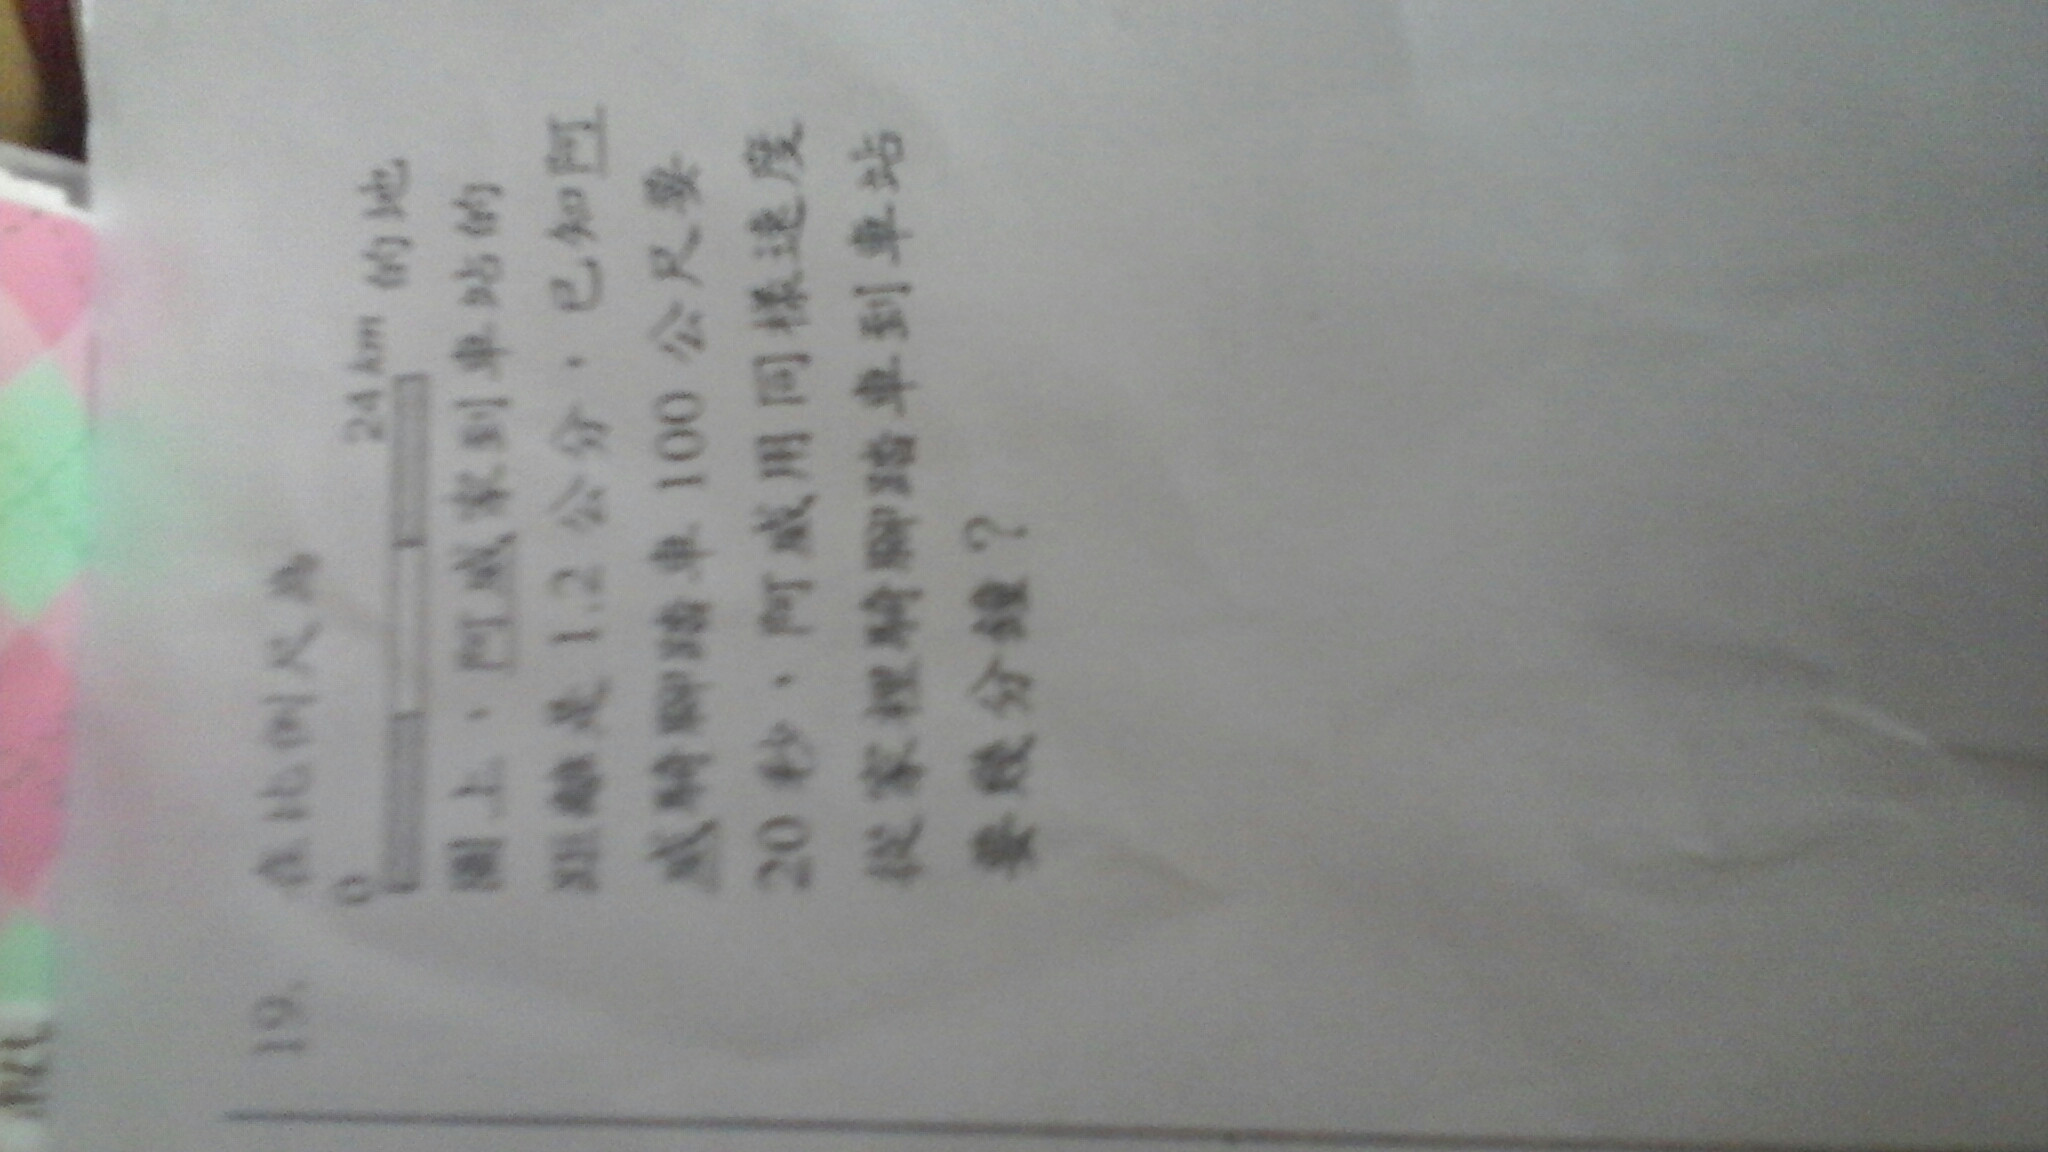 19. 在比例尺為
0 24 km 的地
圖上，阿威家到車站的
距離是 1.2 公分，已知阿
威騎腳踏車 100 公尺要
20 秒，阿威用同樣速度
從家裡騎腳踏車到車站
要幾分鐘？